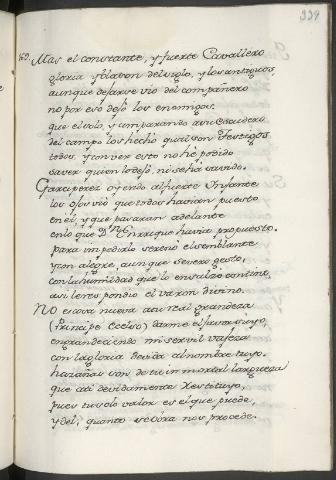 339
Mas el constante, y fuerte Cavallero
gloria, y blason del siglo, y los antiguos
aunque dejarse vio del compañero
no por eso dejó los enemigos.
que el solo, y amparando a su Escudero
del campo los hechó qual son Testigos
todos, y con ver esto no hé podido
saver quien lo dejó, ni se ha savido.
Garziperez oyendo al fuerte Infante
los ojos vió que todos havian puesto
en él, y que pasaran adelante
en lo que Dn. Enrrique havia propuesto.
para impedirlo serenó el semblante
y con alegre, aunque severo gesto,
con la humildad que lo ensalzó continuo,
asi le respondio el varon divino.
No es cosa nueva a tu real grandeza
(Principe Exelso) darme el favor suyo,
engrandeciendo mi servil vajeza
con la gloria devida al nombre tuyo.
hazañas son de tu inmortal largueza
que ati devidamente restituyo,
pues tu solo valor es el que puede,
y del, quanto se obra nos procede.